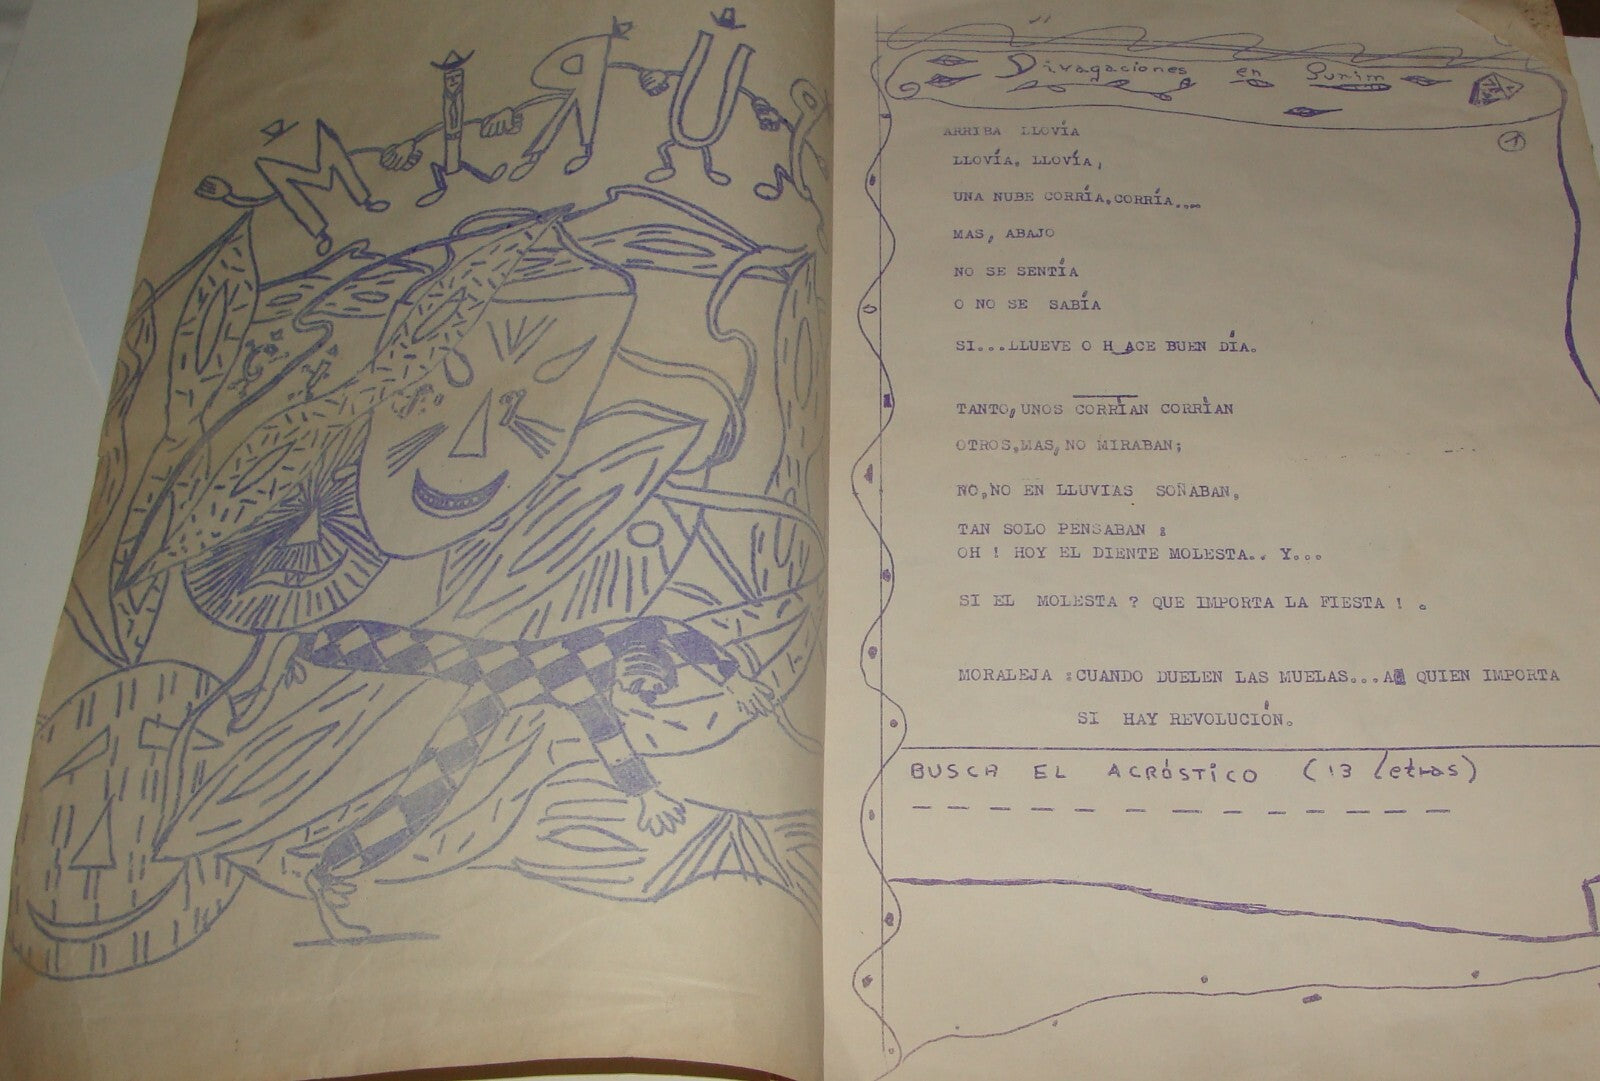 MIRU
Divagaciones en Purim
1
ARRIBA LLOVÍA
LLOVÍA, LLOVÍA,
UNA NUBE CORRÍA,CORRÍA...
MAS, ABAJO
NO SE SENTÍA
O NO SE SABÍA
SI...LLUEVE O H ACE BUEN DÍA.
TANTO,UNOS CORRÌAN CORRÌAN
OTROS,MAS,NO MIRABAN;
NO,NO EN LLUVIAS SOÑABAN,
TAN SOLO PENSABAN :
OH ! HOY EL DIENTE MOLESTA.. Y...
SI EL MOLESTA ? QUE IMPORTA LA FIESTA ! .
MORALEJA :CUANDO DUELEN LAS MUELAS...A QUIEN IMPORTA
SI HAY REVOLUCIÓN.
BUSCA EL ACRÓSTICO (13 letras)